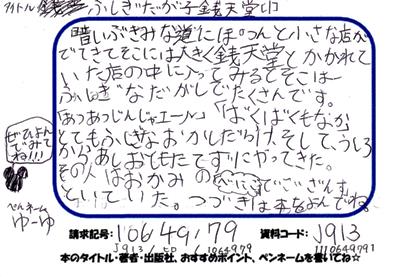 タイトル ふしぎだがし子銭天堂
暗いぶきみな道にぽつんと小さな店が
でてきてそこには大きく銭天堂とかかれて
いた店の中に入ってみるとそこは
ふしぎなだがしでたくさんです。
「あつあつじんじゃエール」「ばくばくもなか」
とてもふしぎなおかしだらけ、そして、うしろ
からあしおともたてずにやってきた。
その人はおかみの べにこでござんす。
といていた。つづきは本をよんでね。
ぜひよん
でみて
ね!!!
ぺんネーム
ゆーゆ
請求記号: 10649179 資料コード: J913
J913 1064979 1110649791
本のタイトル・著者・出版社、おすすめポイント、ペンネームを書いてね☆